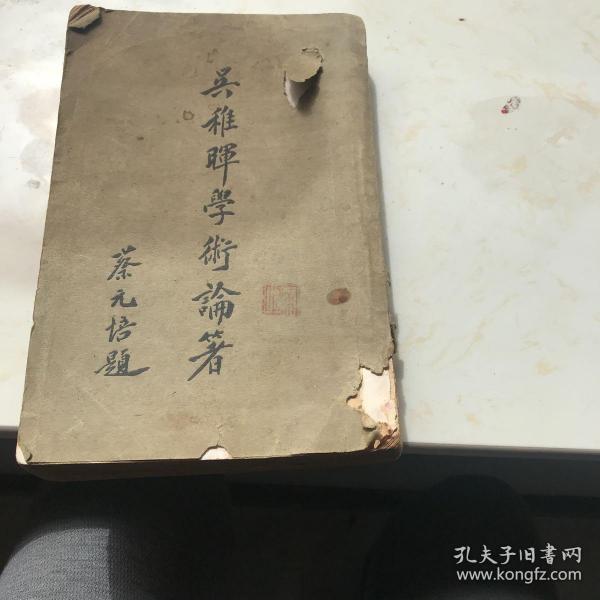 吳稚暉學術論著
蔡元培題
孔夫子旧书网
www.kongfz.com